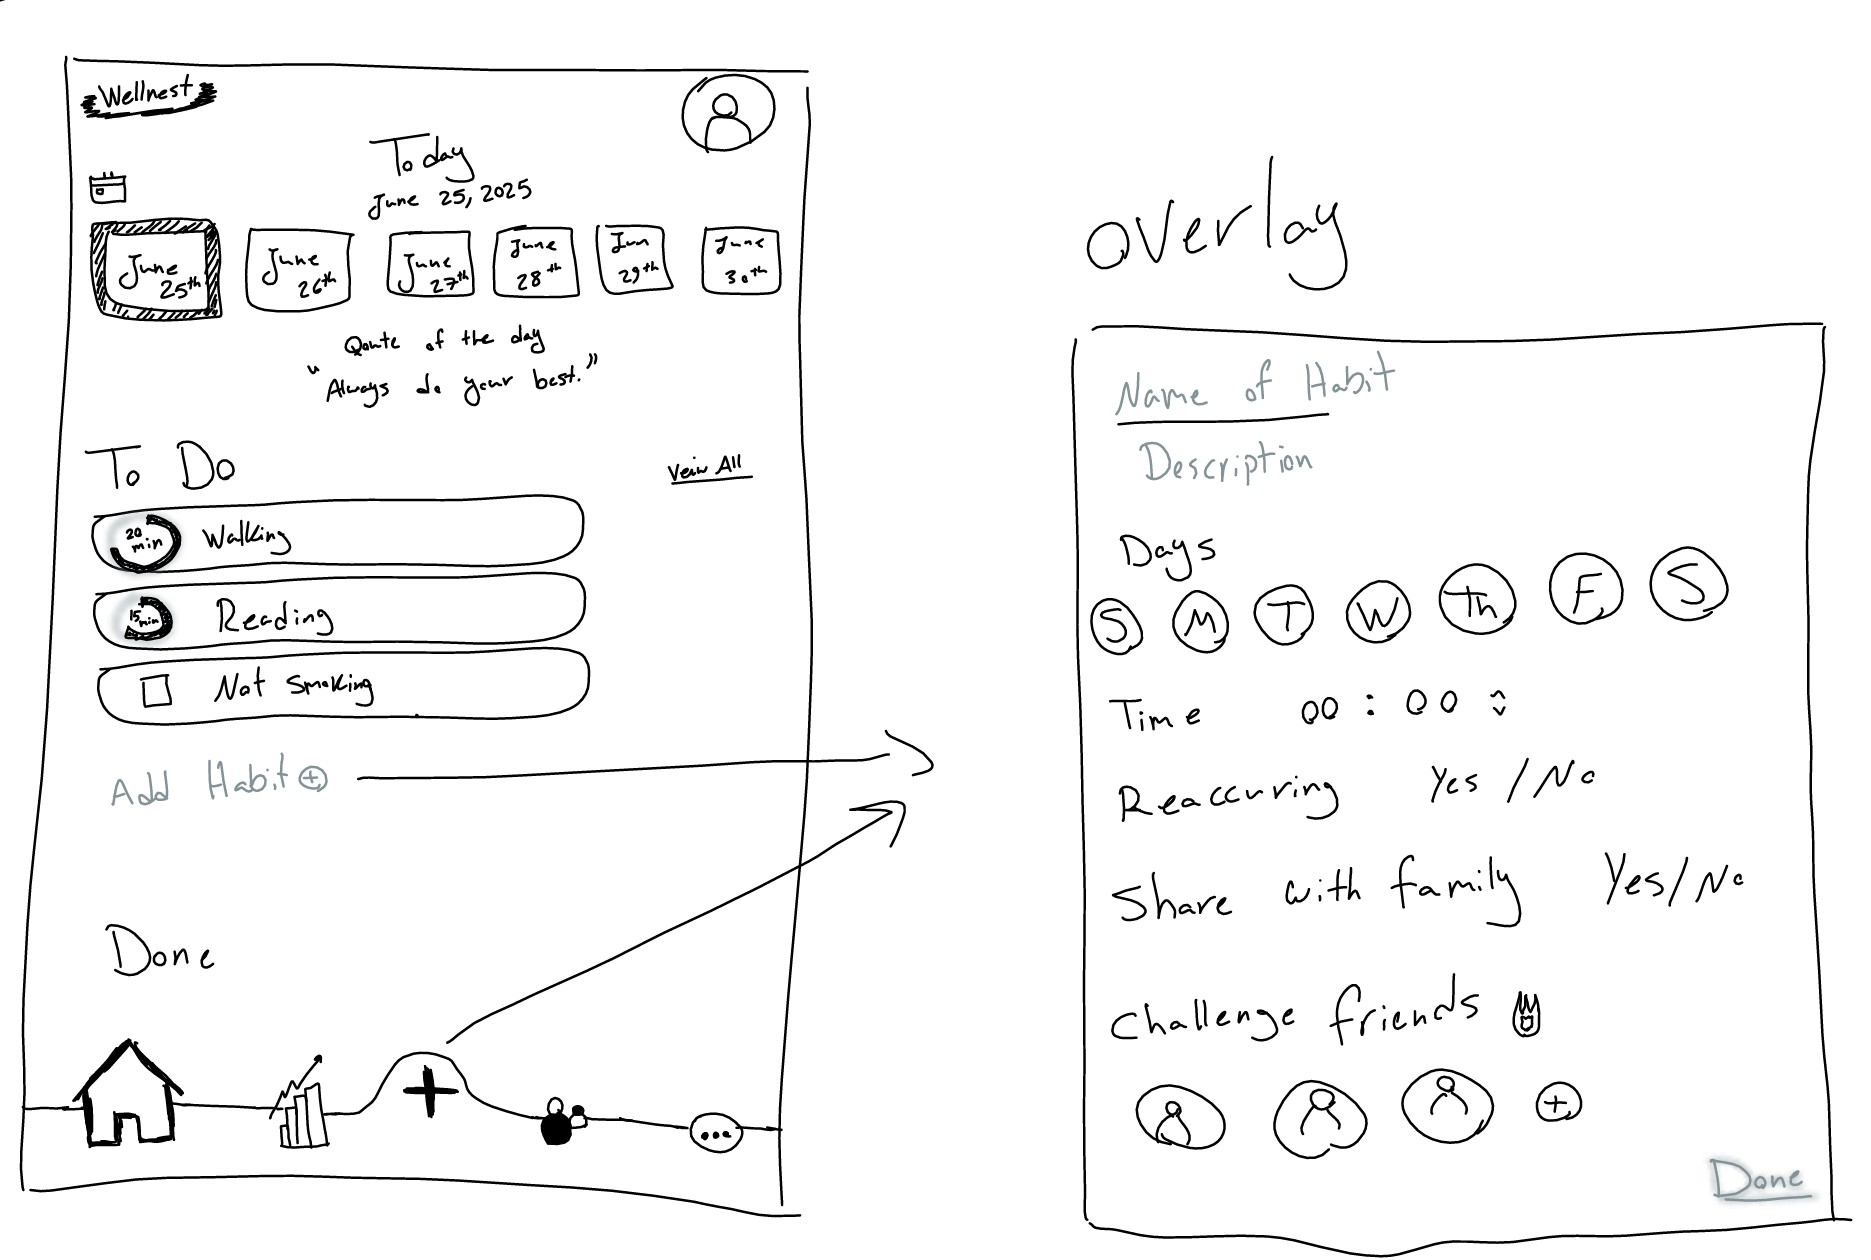 Wellnest
Today
June 25, 2025
June 25th
June 26th
June 27th
June 28th
Jun 29th
June 30th
Qoute of the day
"Always do your best."
To Do
Veiw All
20 min
Walking
15 min
Reading
Not Smoking
Add Habit +
Done
+
...
overlay
Name of Habit
Description
Days
S M T W Th F S
Time 00 : 00
Reaccuring Yes / No
Share with family Yes/No
Challenge friends
+
Done